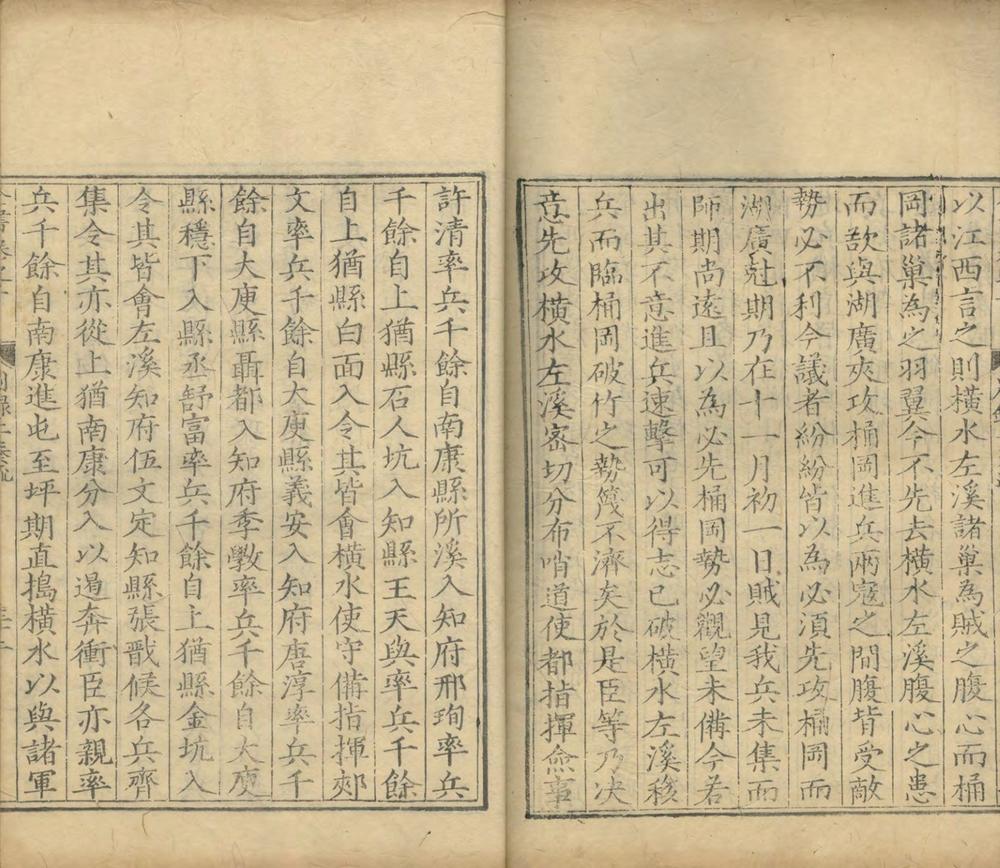 以江西言之則橫水左溪諸巢為賊之腹心而桶
岡諸巢為之羽翼今不先去橫水左溪腹心之患
而欲與湖廣夾攻桶岡進兵兩寇之間腹背受敵
勢必不利今議者紛紛皆以為必須先攻桶岡而
湖廣尅期乃在十一月初一日賊見我兵未集而
師期尚遠且以為必先桶岡勢必觀望未備今若
出其不意進兵速擊可以得志已破橫水左溪移
兵而臨桶岡破竹之勢蔑不濟矣於是臣等乃决
意先攻橫水左溪密切分布哨道使都指揮僉事
許清率兵千餘自南康縣所溪入知府邢珣率兵
千餘自上猶縣石人坑入知縣王天與率兵千餘
自上猶縣白面入令其皆會橫水使守備指揮郟
文率兵千餘自大庾縣義安入知府唐淳率兵千
餘自大庾縣聶都入知府季斆率兵千餘自大庾
縣穩下入縣丞舒富率兵千餘自上猶縣金坑入
令其皆會左溪知府伍文定知縣張戩候各兵齊
集令其亦從上猶南康分入以遏奔衝臣亦親率
兵千餘自南康進屯至坪期直擣橫水以與諸軍